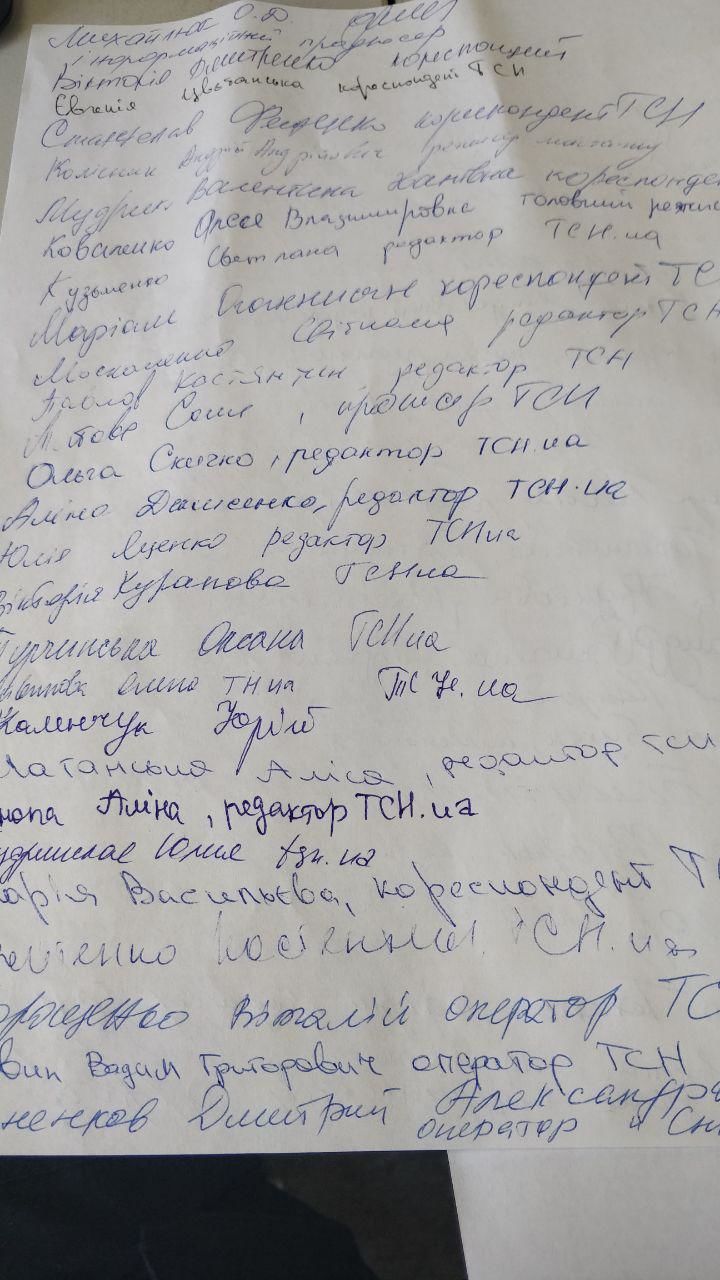 Михайлюк О.Д.
і інформаційний продюсер
Вікторія Дмитренко кореспондент
Євгенія Цвєтанська кореспондент ТСН
Станіслав Феденко кореспондент ТСН
Колісник Андрій Андрійович режисер монтажу
Мудрик Валентина кореспонден
Коваленко Олеся Владимировна головний режис
Кузьменко Светлана редактор ТСН.ua
Маріам кореспондент ТС
Москаленко Світлана редактор ТСН
Павлов Костянтин редактор ТСН
Соня, продюсер ТСН
Ольга Скичко, редактор ТСН.ua
Аліна Денисенко, редактор ТСН.ua
Юлія Яценко редактор ТСНua
Вікторія Куранова ТСНua
Турчинська Оксана ТСНua
Олена ТНua ТСН.ua
Каленчук Юрій
Латанська Аліса, редактор ТСН
нопа Аліна, редактор ТСН.ua
Юлия tsn.ua
арія Васильєва, кореспондент Т
ТСН.ua
Віталій оператор ТС
вин Вадим Григорович оператор ТСН
ненков Дмитрий Александр
оператор